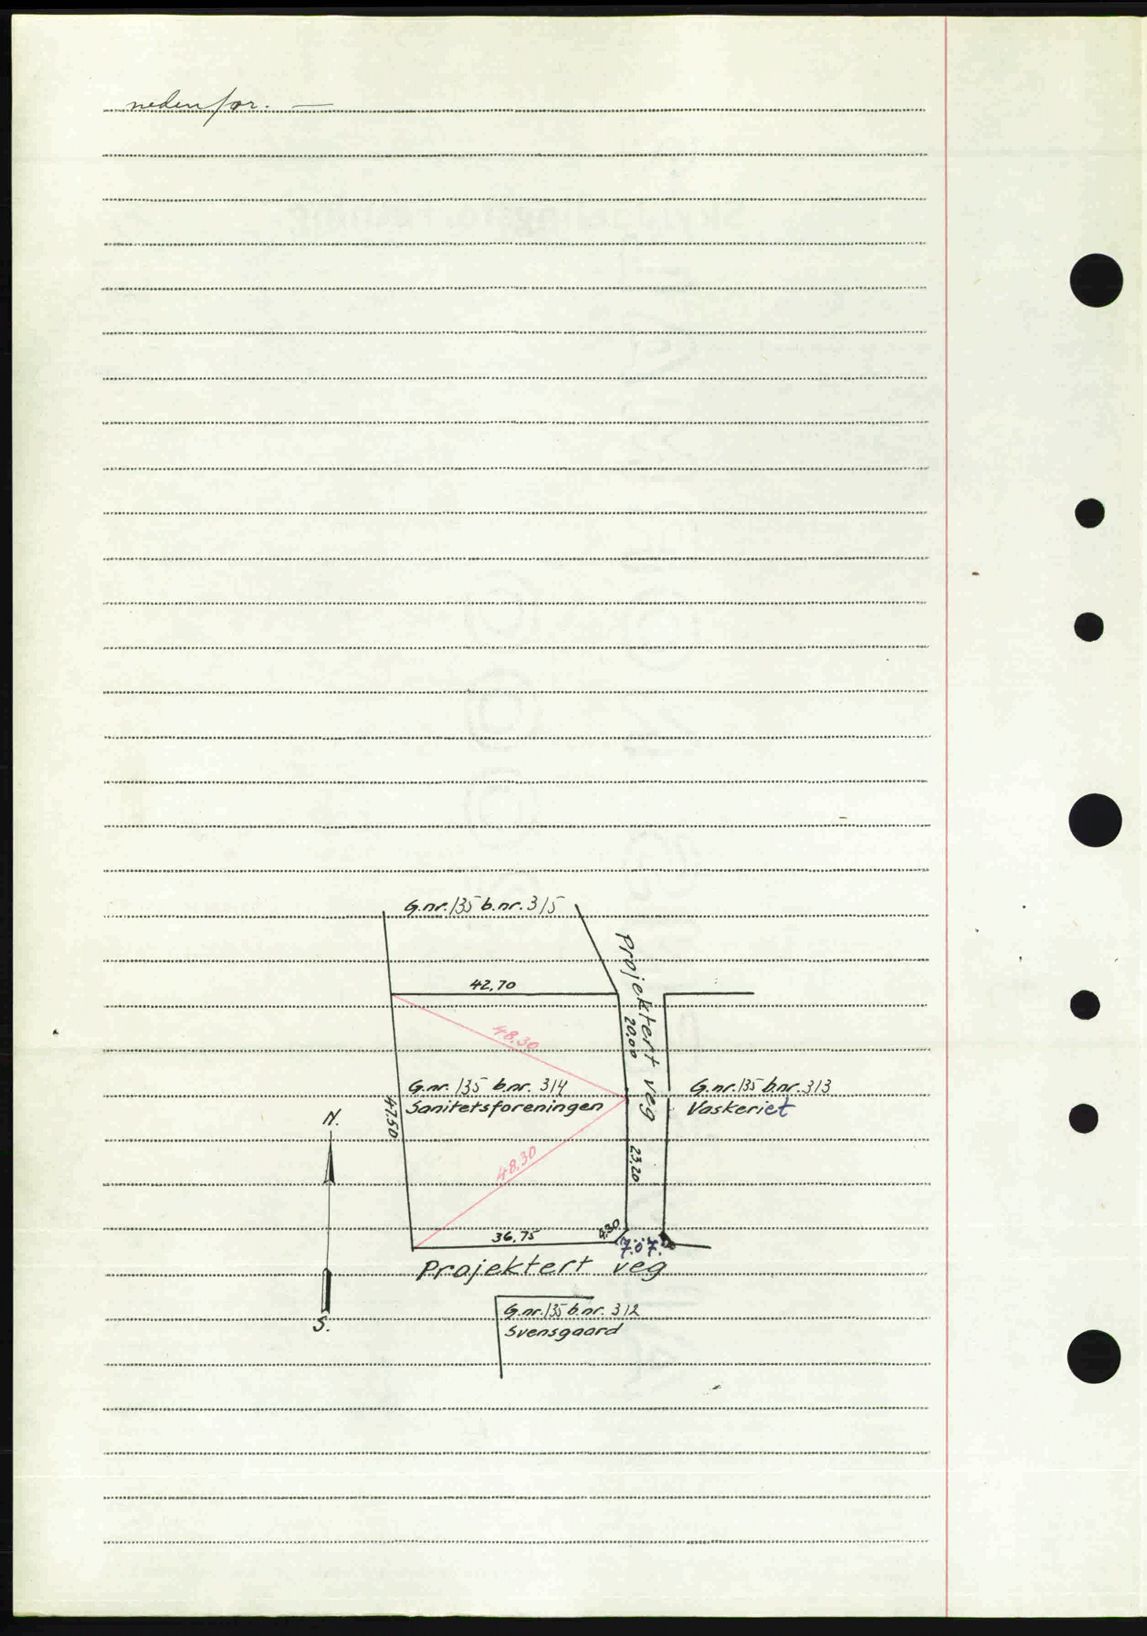 nedenfor. —
G.nr. 135 b.nr. 315
Projektert veg
42,70
20,00
48,30
G.nr. 135 b.nr. 314
Sanitetsforeningen
G.nr. 135 b.nr. 313
Vaskeriet
47,50
N.
48,30
23,20
36,75
4,30
7.07.
Projektert veg
G.nr. 135 b.nr. 312
Svensgaard
S.